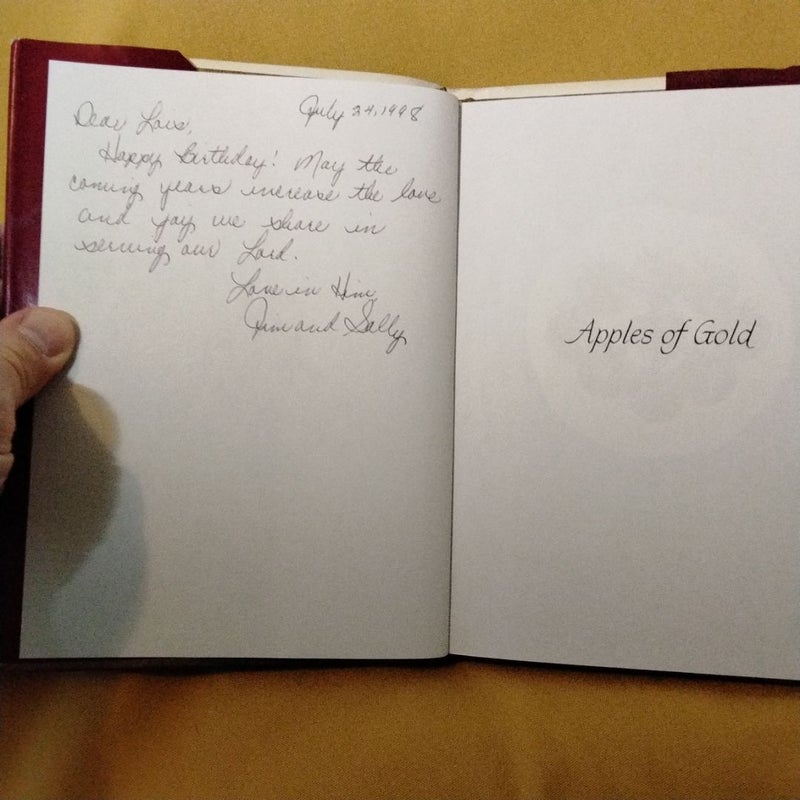 July 24, 1998
Dear Lois,
Happy Birthday! May the
coming years increase the love
and joy we share in
serving our Lord.
Love in Him,
Jim and Sally
Apples of Gold